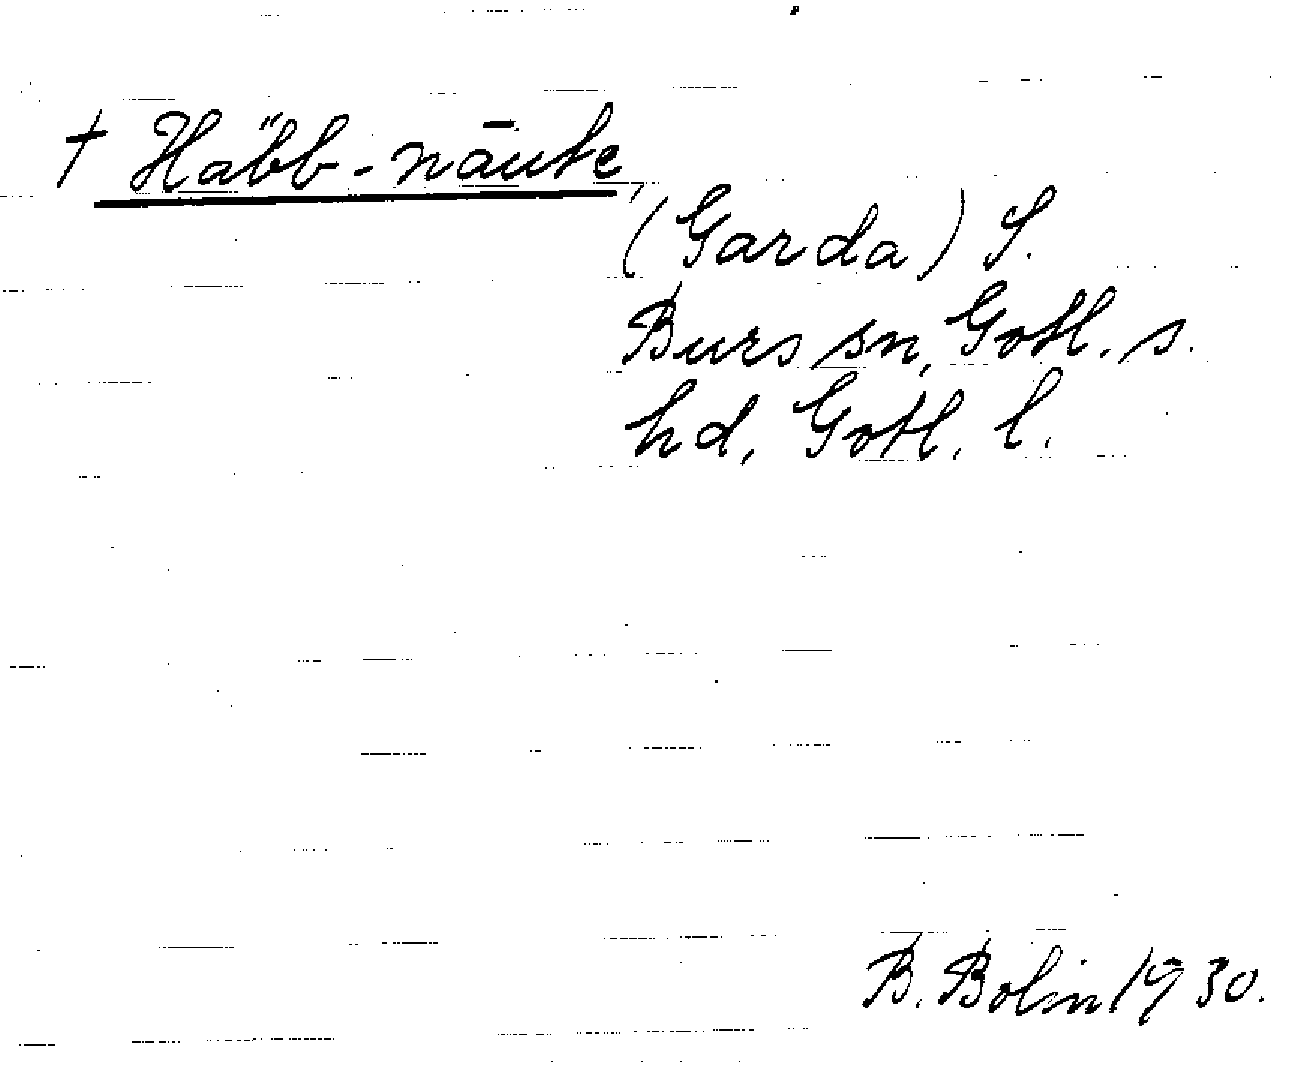 † Häbb-nāute,
(Garda) S.
Burs sn, Gotl. s.
hd, Gotl. l.
B. Bolin 1930.